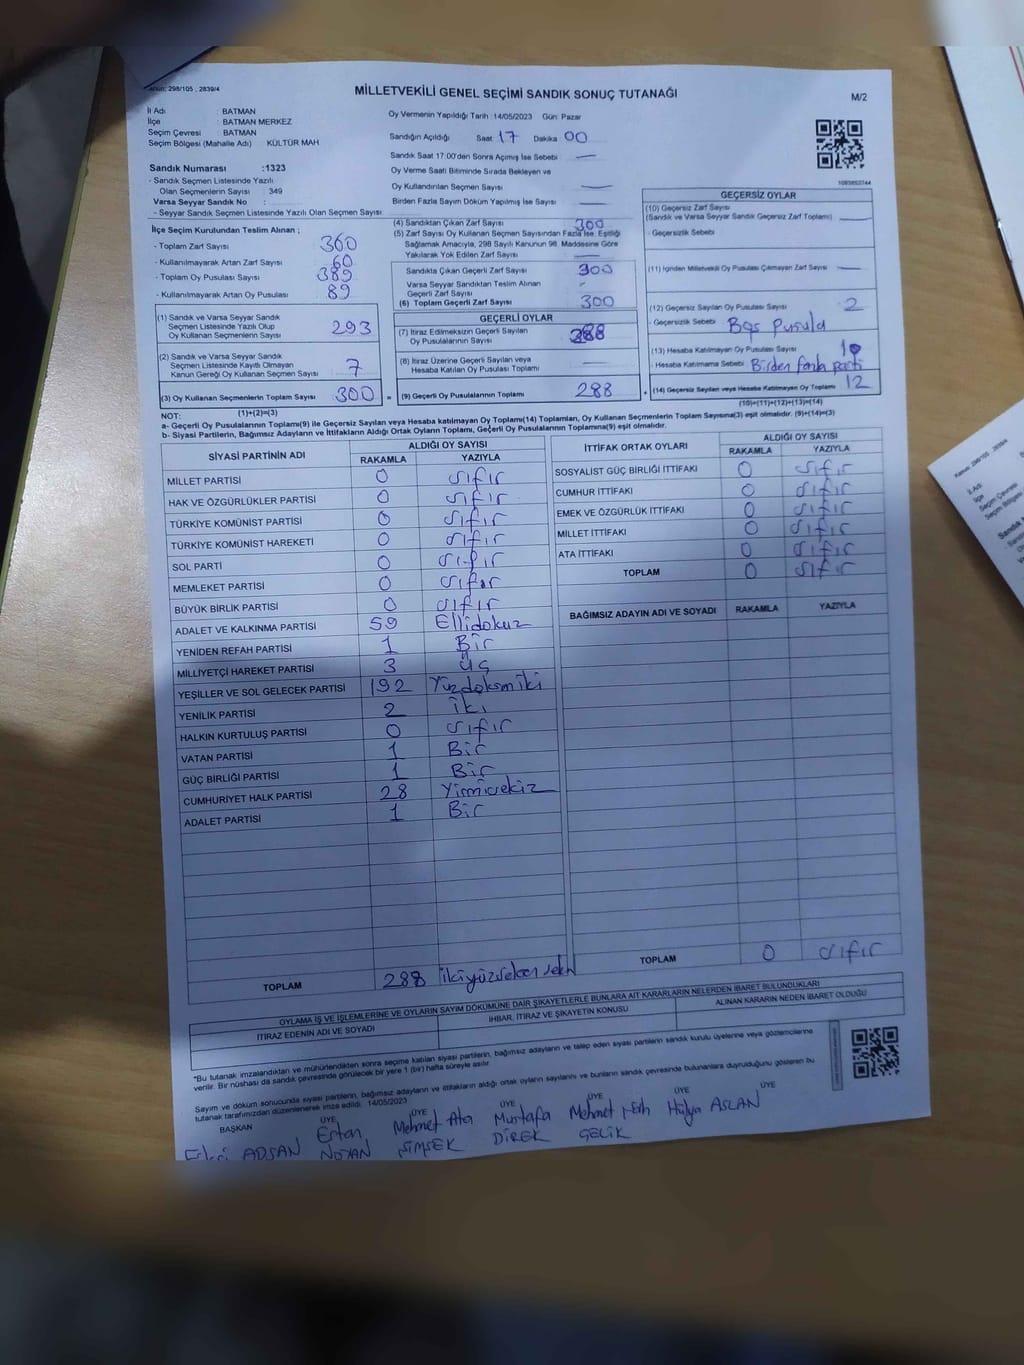 Kanun: 298/105 ; 2839/4
MİLLETVEKİLİ GENEL SEÇİMİ SANDIK SONUÇ TUTANAĞI
M/2
İl Adı : BATMAN
İlçe : BATMAN MERKEZ
Seçim Çevresi : BATMAN
Seçim Bölgesi (Mahalle Adı) KÜLTÜR MAH
Sandık Numarası :1323
- Sandık Seçmen Listesinde Yazılı
Olan Seçmenlerin Sayısı : 349
Varsa Seyyar Sandık No :
- Seyyar Sandık Seçmen Listesinde Yazılı Olan Seçmen Sayısı
İlçe Seçim Kurulundan Teslim Alınan ;
- Toplam Zarf Sayısı 360
- Kullanılmayarak Artan Zarf Sayısı 60
- Toplam Oy Pusulası Sayısı 389
- Kullanılmayarak Artan Oy Pusulası 89
(1) Sandık ve Varsa Seyyar Sandık
Seçmen Listesinde Yazılı Olup
Oy Kullanan Seçmenlerin Sayısı 293
(2) Sandık ve Varsa Seyyar Sandık
Seçmen Listesinde Kayıtlı Olmayan
Kanun Gereği Oy Kullanan Seçmen Sayısı 7
(3) Oy Kullanan Seçmenlerin Toplam Sayısı 300 =
(1)+(2)=(3)
Oy Vermenin Yapıldığı Tarih :14/05/2023 Gün: Pazar
Sandığın Açıldığı Saat 17 Dakika 00
Sandık Saat 17:00'den Sonra Açılmış İse Sebebi —
Oy Verme Saati Bitiminde Sırada Bekleyen ve
Oy Kullandırılan Seçmen Sayısı —
Birden Fazla Sayım Döküm Yapılmış İse Sayısı —
(4) Sandıktan Çıkan Zarf Sayısı 300
(5) Zarf Sayısı Oy Kullanan Seçmen Sayısından Fazla İse, Eşitliği
Sağlamak Amacıyla, 298 Sayılı Kanunun 98. Maddesine Göre
Yakılarak Yok Edilen Zarf Sayısı —
Sandıkta Çıkan Geçerli Zarf Sayısı 300
Varsa Seyyar Sandıktan Teslim Alınan
Geçerli Zarf Sayısı -
(6) Toplam Geçerli Zarf Sayısı 300
GEÇERLİ OYLAR
(7) İtiraz Edilmeksizin Geçerli Sayılan
Oy Pusulalarının Sayısı 288
(8) İtiraz Üzerine Geçerli Sayılan veya
Hesaba Katılan Oy Pusulası Toplamı —
(9) Geçerli Oy Pusulalarının Toplamı 288 +
1083852744
GEÇERSİZ OYLAR
(10) Geçersiz Zarf Sayısı
(Sandık ve Varsa Seyyar Sandık Geçersiz Zarf Toplamı) —
- Geçersizlik Sebebi
(11) İçinden Milletvekili Oy Pusulası Çıkmayan Zarf Sayısı —
(12) Geçersiz Sayılan Oy Pusulası Sayısı 2
- Geçersizlik Sebebi Boş Pusula
(13) Hesaba Katılmayan Oy Pusulası Sayısı 10
- Hesaba Katılmama Sebebi Birden fazla parti
(14) Geçersiz Sayılan veya Hesaba Katılmayan Oy Toplamı 12
(10)+(11)+(12)+(13)=(14)
NOT:
a- Geçerli Oy Pusulalarının Toplamı(9) ile Geçersiz Sayılan veya Hesaba katılmayan Oy Toplamı(14) Toplamları, Oy Kullanan Seçmenlerin Toplam Sayısına(3) eşit olmalıdır. (9)+(14)=(3)
b- Siyasi Partilerin, Bağımsız Adayların ve İttifakların Aldığı Ortak Oyların Toplamı, Geçerli Oy Pusulalarının Toplamına(9) eşit olmalıdır.
SİYASİ PARTİNİN ADI ALDIĞI OY SAYISI
RAKAMLA YAZIYLA
MİLLET PARTİSİ 0 sıfır
HAK VE ÖZGÜRLÜKLER PARTİSİ 0 sıfır
TÜRKİYE KOMÜNİST PARTİSİ 0 sıfır
TÜRKİYE KOMÜNİST HAREKETİ 0 sıfır
SOL PARTİ 0 sıfır
MEMLEKET PARTİSİ 0 sıfır
BÜYÜK BİRLİK PARTİSİ 0 sıfır
ADALET VE KALKINMA PARTİSİ 59 Ellidokuz
YENİDEN REFAH PARTİSİ 1 Bir
MİLLİYETÇİ HAREKET PARTİSİ 3 Üç
YEŞİLLER VE SOL GELECEK PARTİSİ 192 Yüzdoksmiki
YENİLİK PARTİSİ 2 iki
HALKIN KURTULUŞ PARTİSİ 0 sıfır
VATAN PARTİSİ 1 Bir
GÜÇ BİRLİĞİ PARTİSİ 1 Bir
CUMHURİYET HALK PARTİSİ 28 Yirmisekiz
ADALET PARTİSİ 1 Bir
TOPLAM 288
İTTİFAK ORTAK OYLARI ALDIĞI OY SAYISI
RAKAMLA YAZIYLA
SOSYALİST GÜÇ BİRLİĞİ İTTİFAKI 0 sıfır
CUMHUR İTTİFAKI 0 sıfır
EMEK VE ÖZGÜRLÜK İTTİFAKI 0 sıfır
MİLLET İTTİFAKI 0 sıfır
ATA İTTİFAKI 0 sıfır
TOPLAM 0 sıfır
BAĞIMSIZ ADAYIN ADI VE SOYADI RAKAMLA YAZIYLA
TOPLAM 0 sıfır
OYLAMA İŞ VE İŞLEMLERİNE VE OYLARIN SAYIM DÖKÜMÜNE DAİR ŞİKAYETLERLE BUNLARA AİT KARARLARIN NELERDEN İBARET BULUNDUKLARI
İTİRAZ EDENİN ADI VE SOYADI İHBAR, İTİRAZ VE ŞİKAYETİN KONUSU ALINAN KARARIN NEDEN İBARET OLDUĞU
*Bu tutanak imzalandıktan ve mühürlendikten sonra seçime katılan siyasi partilerin, bağımsız adayların ve talep eden siyasi partilerin sandık kurulu üyelerine veya gözlemcilerine
verilir. Bir nüshası da sandık çevresinde görülecek bir yere 1 (bir) hafta süreyle asılır.
Sayım ve döküm sonucunda siyasi partilerin, bağımsız adayların ve ittifakların aldığı ortak oyların sayılarını ve bunların sandık çevresinde bulunanlara duyrulduğunu gösteren bu
tutanak tarafımızdan düzenlenerek imza edildi. 14/05/2023
BAŞKAN ÜYE ÜYE ÜYE ÜYE ÜYE ÜYE
ADSAN
Ertan NOYAN
Mehmet Ata ŞİMŞEK
Mustafa DİREK
Mehmet ÇELİK
Hülya ASLAN